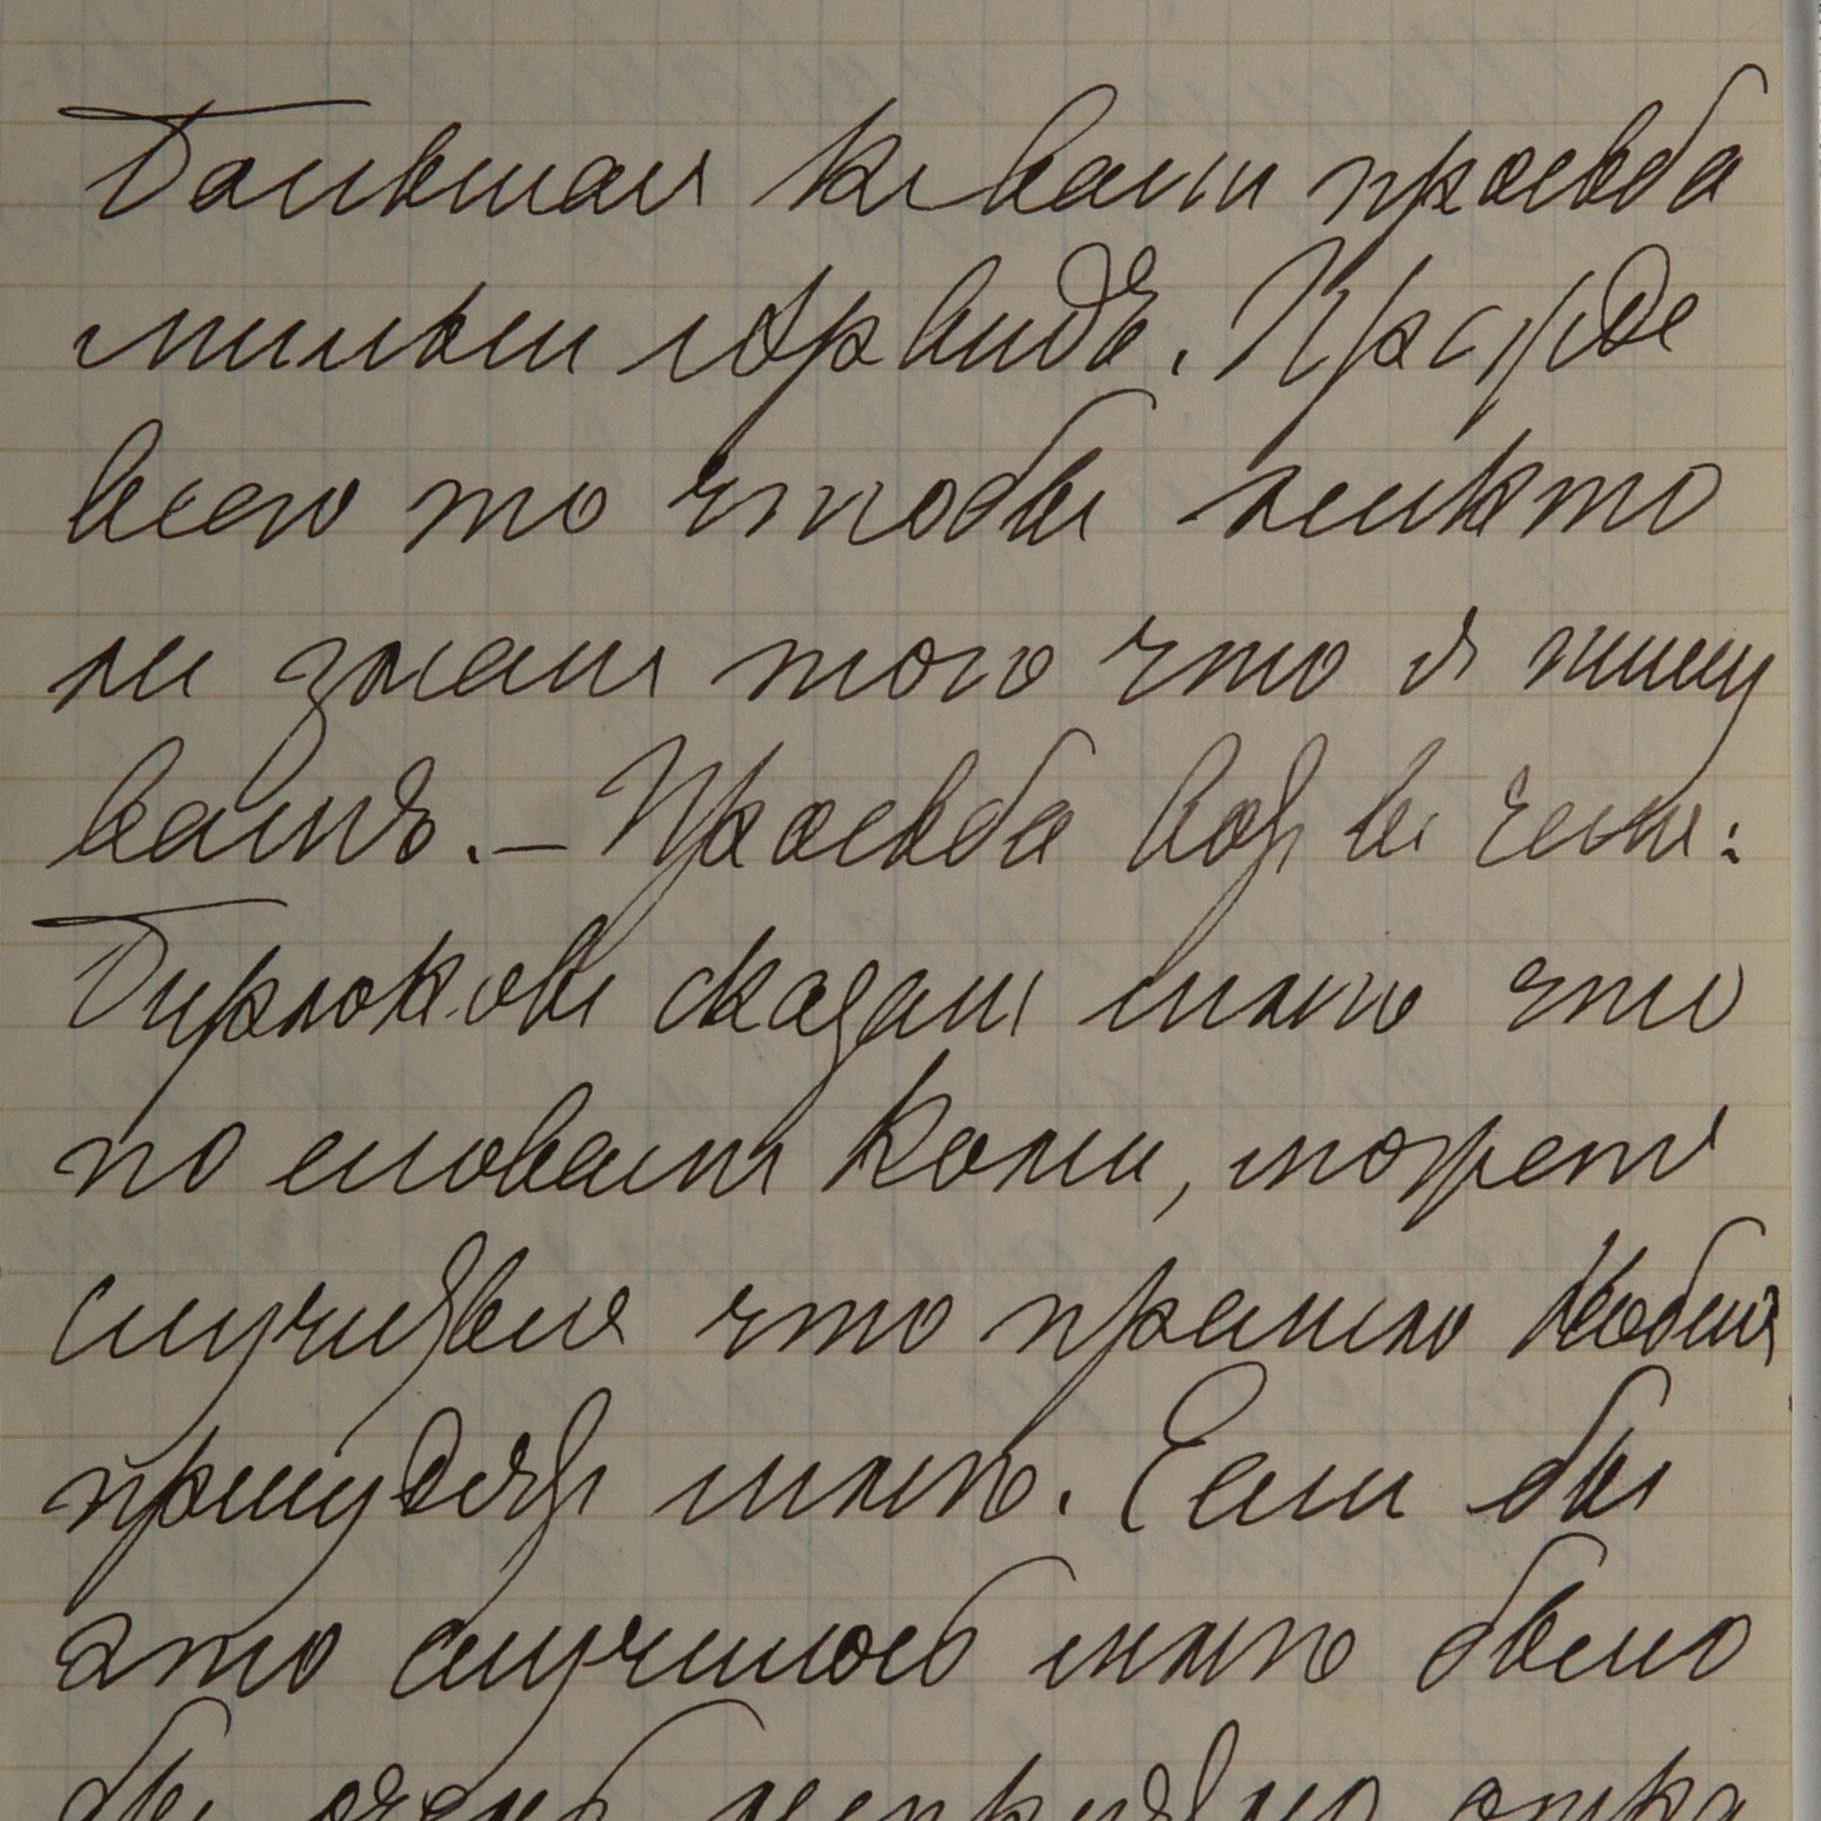 Большая къ вамъ просьба
милый Эрвидѣ. Прежде
всего то чтобы никто
не зналъ того что я пишу
вамъ. — Просьба вотъ въ чемъ:
Бирюковъ сказалъ мнѣ что
по словамъ Кони, можетъ
случиться что премію Нобеля
присудятъ мнѣ. Если бы
это случилось мнѣ было
бы очень непріятно отка